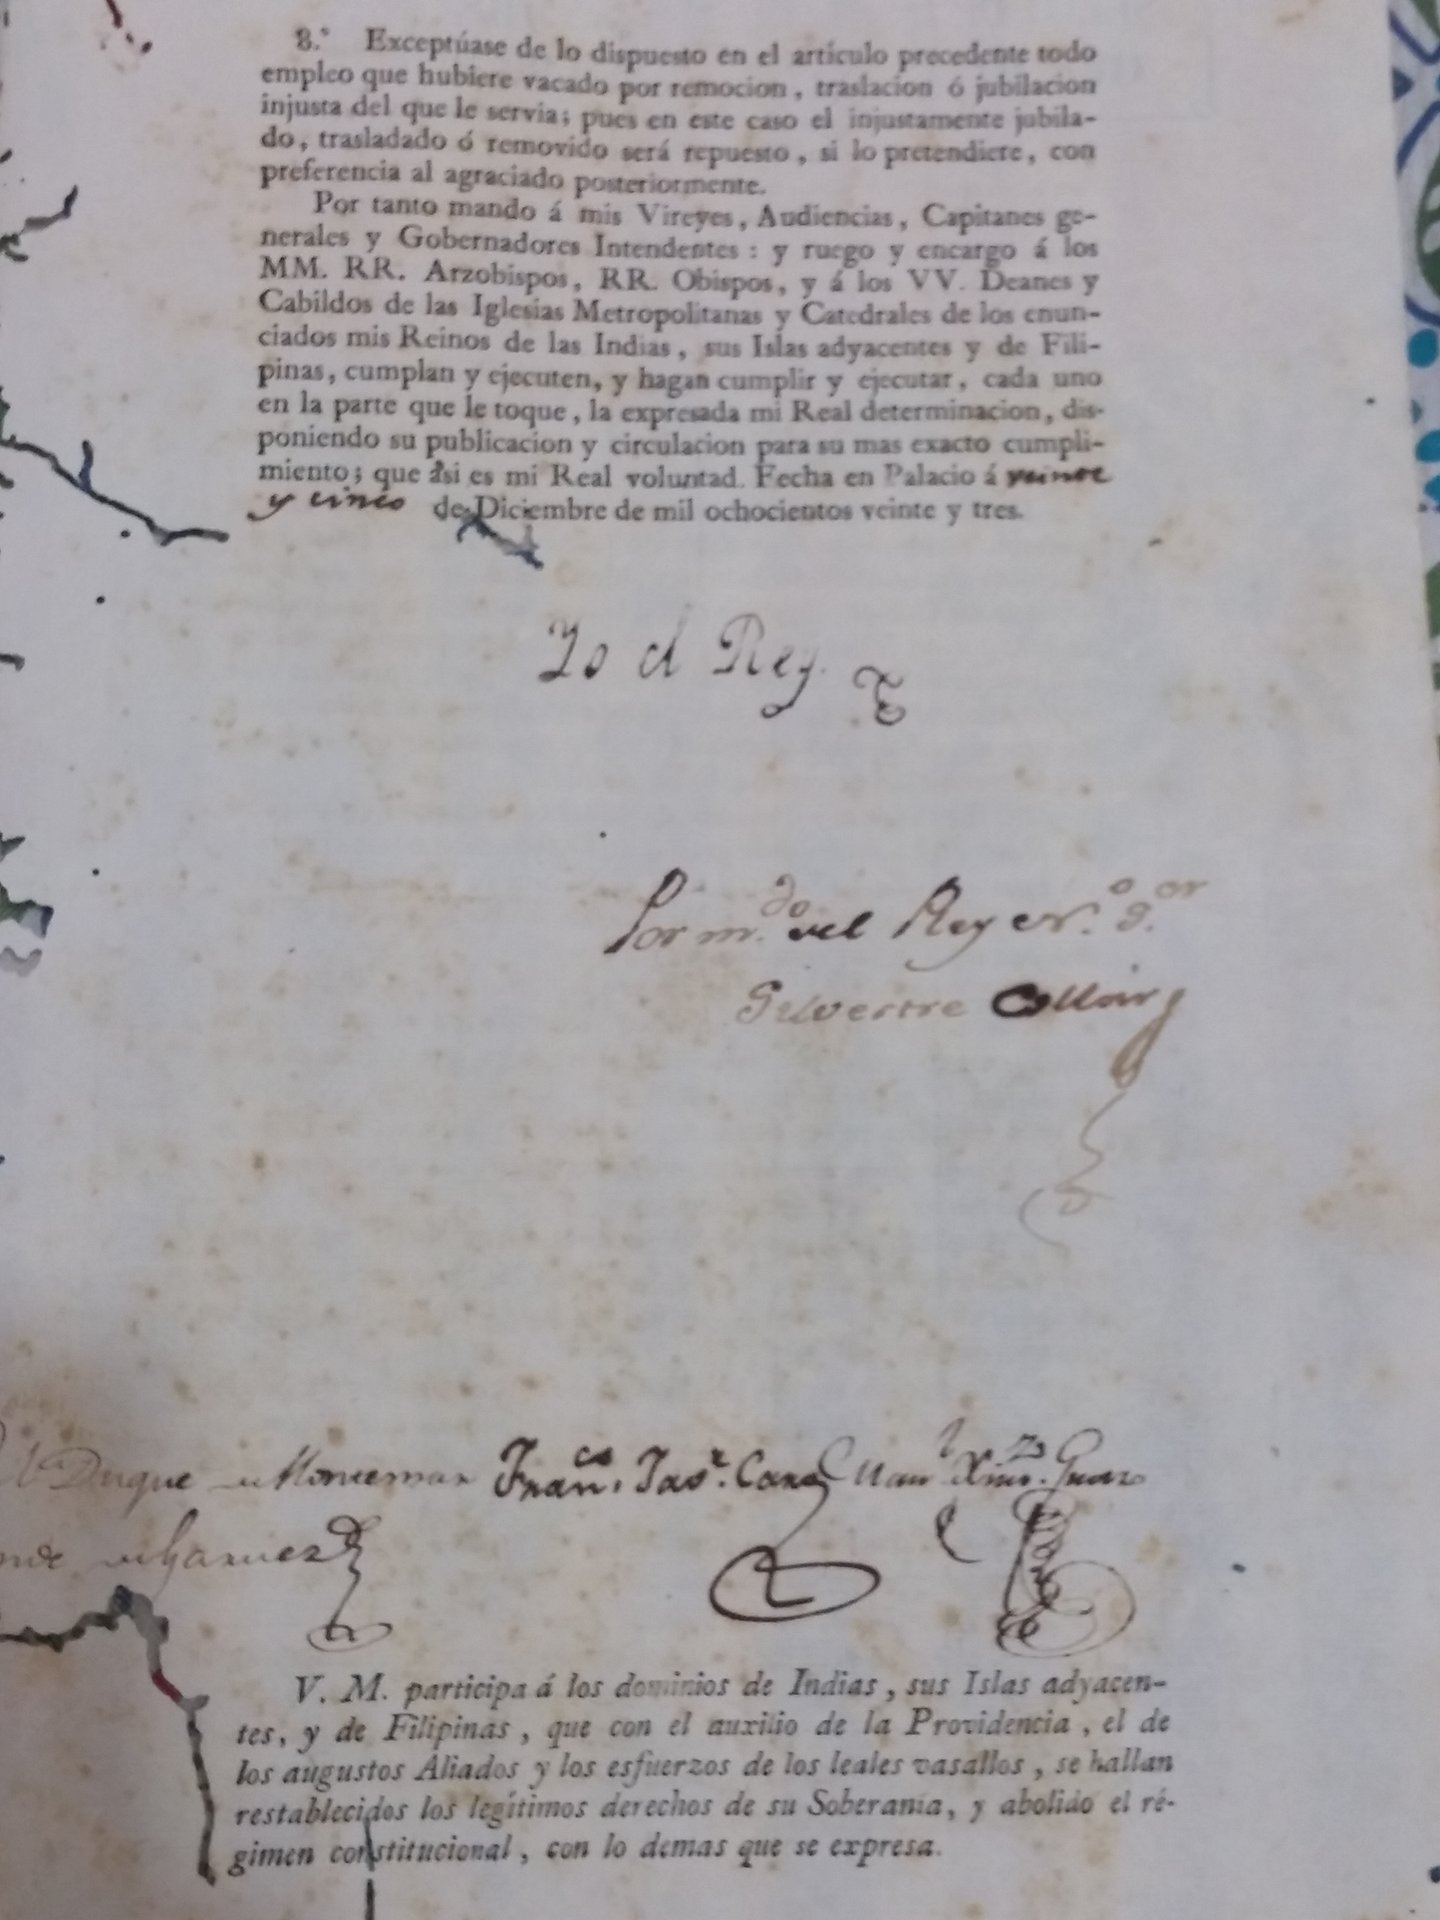 8.º Exceptúase de lo dispuesto en el artículo precedente todo
empleo que hubiere vacado por remocion, traslacion ó jubilacion
injusta del que le servia; pues en este caso el injustamente jubila-
do, trasladado ó removido será repuesto, si lo pretendiere, con
preferencia al agraciado posteriormente.
Por tanto mando á mis Vireyes, Audiencias, Capitanes ge-
nerales y Gobernadores Intendentes: y ruego y encargo á los
MM. RR. Arzobispos, RR. Obispos, y á los VV. Deanes y
Cabildos de las Iglesias Metropolitanas y Catedrales de los enun-
ciados mis Reinos de las Indias, sus Islas adyacentes y de Fili-
pinas, cumplan y ejecuten, y hagan cumplir y ejecutar, cada uno
en la parte que le toque, la expresada mi Real determinacion, dis-
poniendo su publicacion y circulacion para su mas exacto cumpli-
miento; que asi es mi Real voluntad. Fecha en Palacio á veinte
y cinco de Diciembre de mil ochocientos veinte y tres.
Yo el Rey.
Por m.do del Rey N.o S.or
Silvestre Collar
Duque de Montemar Fran.co
V. M. participa á los dominios de Indias, sus Islas adyacen-
tes, y de Filipinas, que con el auxilio de la Providencia, el de
los augustos Aliados y los esfuerzos de los leales vasallos, se hallan
restablecidos los legítimos derechos de su Soberanía, y abolido el ré-
gimen constitucional, con lo demas que se expresa.